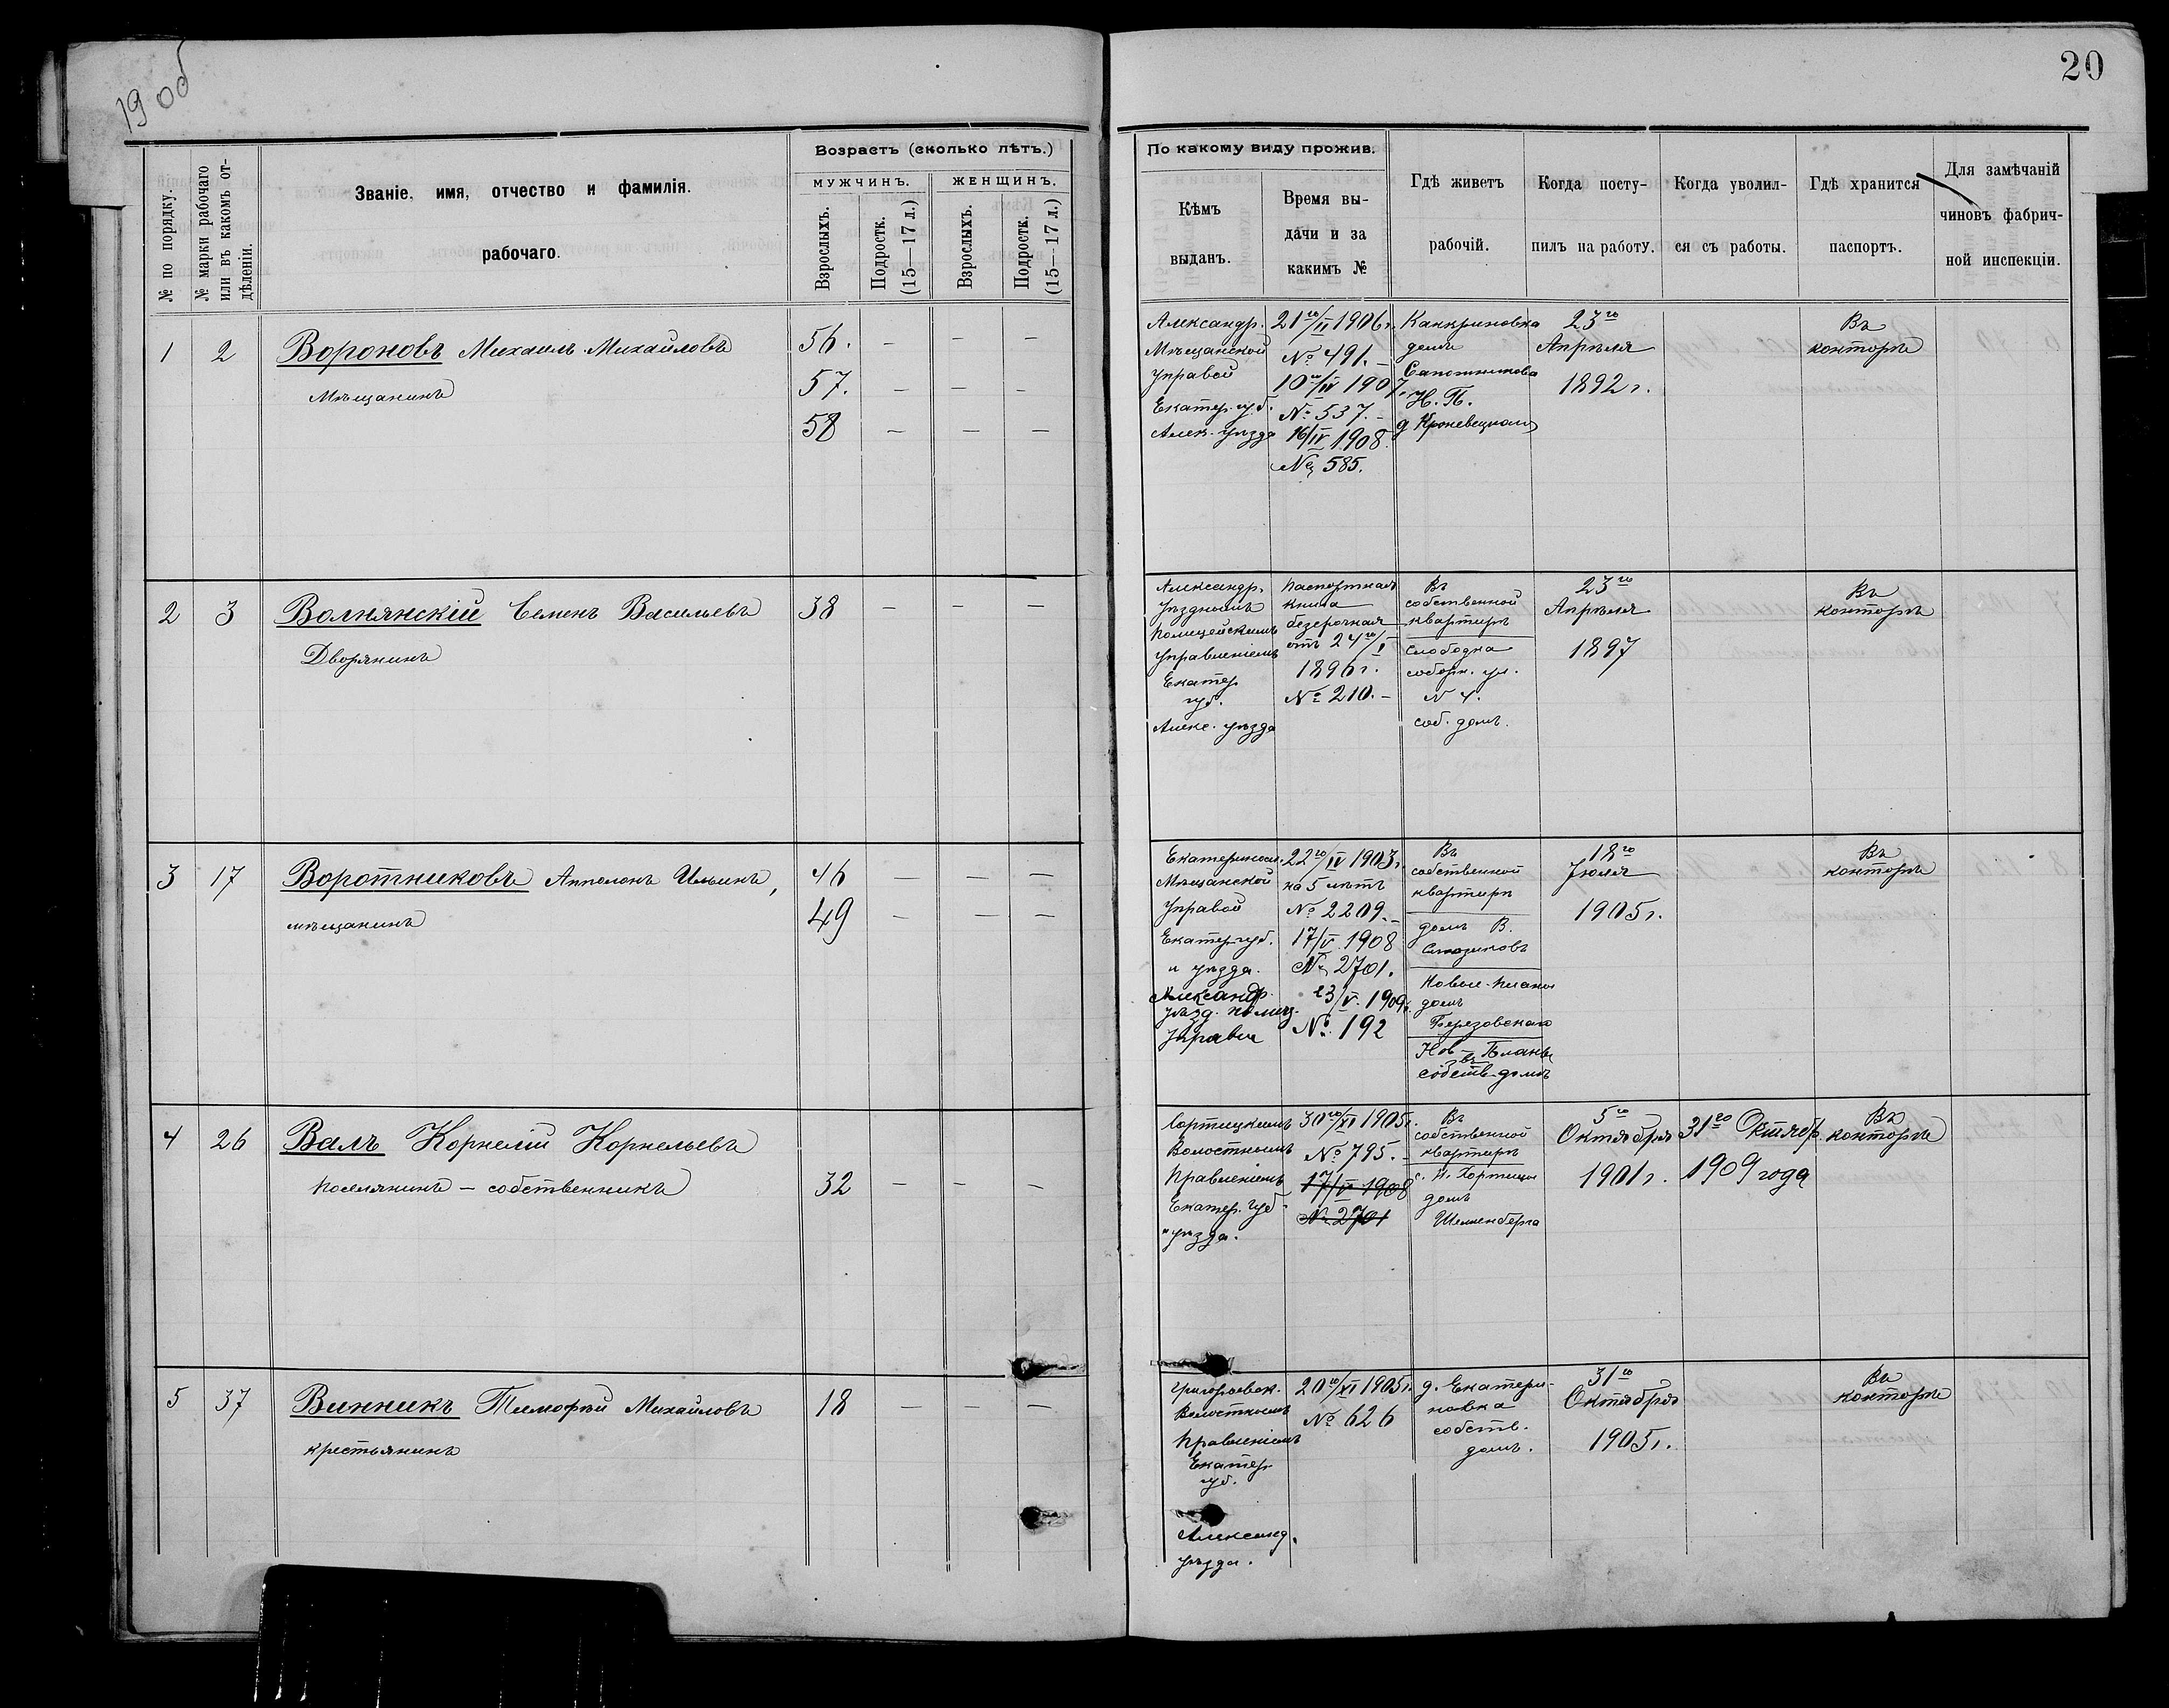 19 об
20
№ по порядку.
№ марки рабочаго или въ какомъ от-дѣленіи.
Званіе, имя, отчество и фамилія.
рабочаго.
Возрастъ (сколько лѣтъ.)
МУЖЧИНЪ.
ЖЕНЩИНЪ.
Взрослыхъ.
Подростк. (15—17 л.)
Взрослыхъ.
Подростк. (15—17 л.)
По какому виду прожив.
Кѣмъ
выданъ.
Время вы-
дачи и за
какимъ №
Гдѣ живетъ
рабочій.
Когда посту-
пилъ на работу.
Когда уволил-
ся съ работы.
Гдѣ хранится
паспортъ.
Для замѣчаній
чиновъ фабрич-
ной инспекціи.
1 2 Вороновъ Михаилъ Михайловъ
Мѣщанинъ
56. — — —
57. — — —
58 — — —
Александр.
Мѣщанской
Управой
Екатер. губ.
Алек. уѣзда
21го/II 1906 г.
№ 491. –
10го/IV 1907
№ 537. –
16/IV 1908
№ 585.
Канкриновка
домъ
Сапожникова
Н. П.
д Кроневецкаго
23го
Апрѣля
1892 г.
Въ
конторѣ
2 3 Волнянскій Семенъ Васильевъ 38 — — —
Дворянинъ
Александр.
Уѣзднымъ
Полицейскимъ
Управленіемъ
Екатер
губ.
Алекс. уѣзда
Паспортная
книга
безсрочная
отъ 24го/I
1896 г.
№ 210. –
Въ
собственной
квартирѣ
Слободка
соборн. ул.
N 4.
соб. домъ.
23го
Апрѣля
1897
Въ
конторѣ
3 17 Воротниковъ Апполонъ Ильинъ,
мѣщанинъ
46 — — —
49 — — —
Екатериносл.
Мѣщанской
Управой
Екатер губ.
и уѣзда.
Александр.
уѣзд. полиц.
Управл
22го/IV 1903 г.
на 5 лѣтъ
№ 2209. –
17/V 1908
№ 2701.
23/V. 1909 г.
№ 192
Въ
собственной
квартирѣ
домъ В.
Новые-планы
домъ
Березовская
Нов – Планы
въ
собств. домѣ
18го
Іюля
1905 г.
Въ
конторѣ
4 26 Валъ Корнелій Корнельевъ
поселянинъ – собственникъ 32 — — —
Хортицкимъ
Волостнымъ
Правленіемъ
Екатер. губ
" уѣзда.
30го/XI 1905 г.
№ 795. –
17/V 1908
№ 2701
Въ
собственной
квартирѣ
с. Н. Хортица
домъ
Шелленберга
5го
Октября
1901 г.
31го Октяб.
1909 года
Въ
конторѣ
5 37 Винникъ Тимофѣй Михайловъ 18 — — —
крестьянинъ
Григорьевск.
Волостнымъ
Правленіемъ
Екатер
губ.
Александ.
уѣзда.
20го/XI 1905 г.
№ 626
д. Екатери-
новка
собств.
домъ.
31го
Октября
1905 г.
Въ
конторѣ